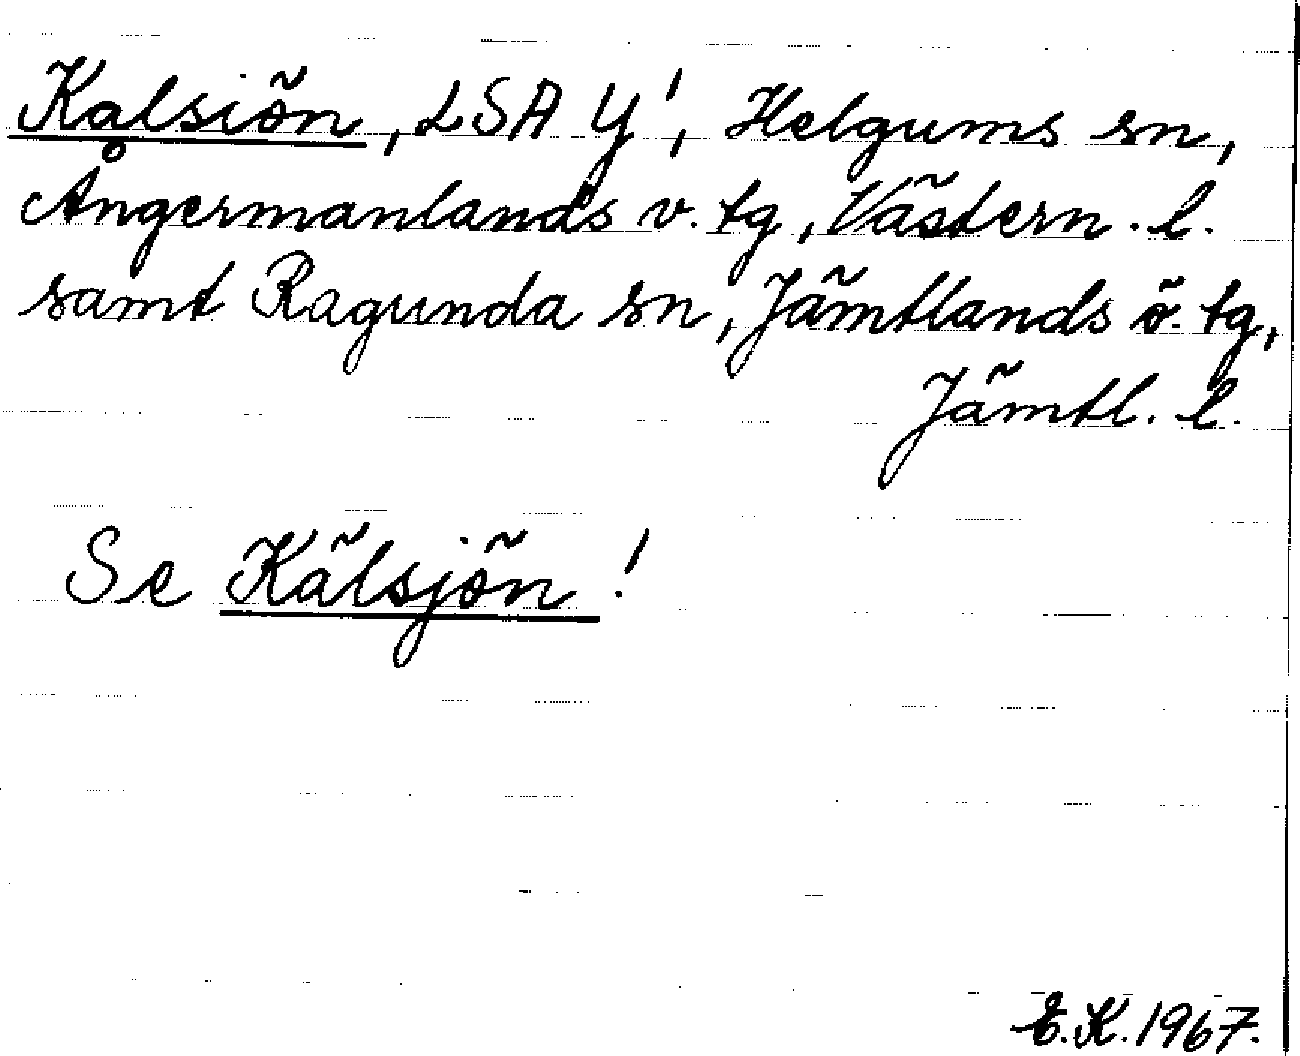 Kalsiön, LSA Y¹, Helgums sn,
Ångermanlands v. tg, Västern. l.
samt Ragunda sn, Jämtlands ö. tg,
Jämtl. l.
Se Kälsjön!
E.K. 1967.